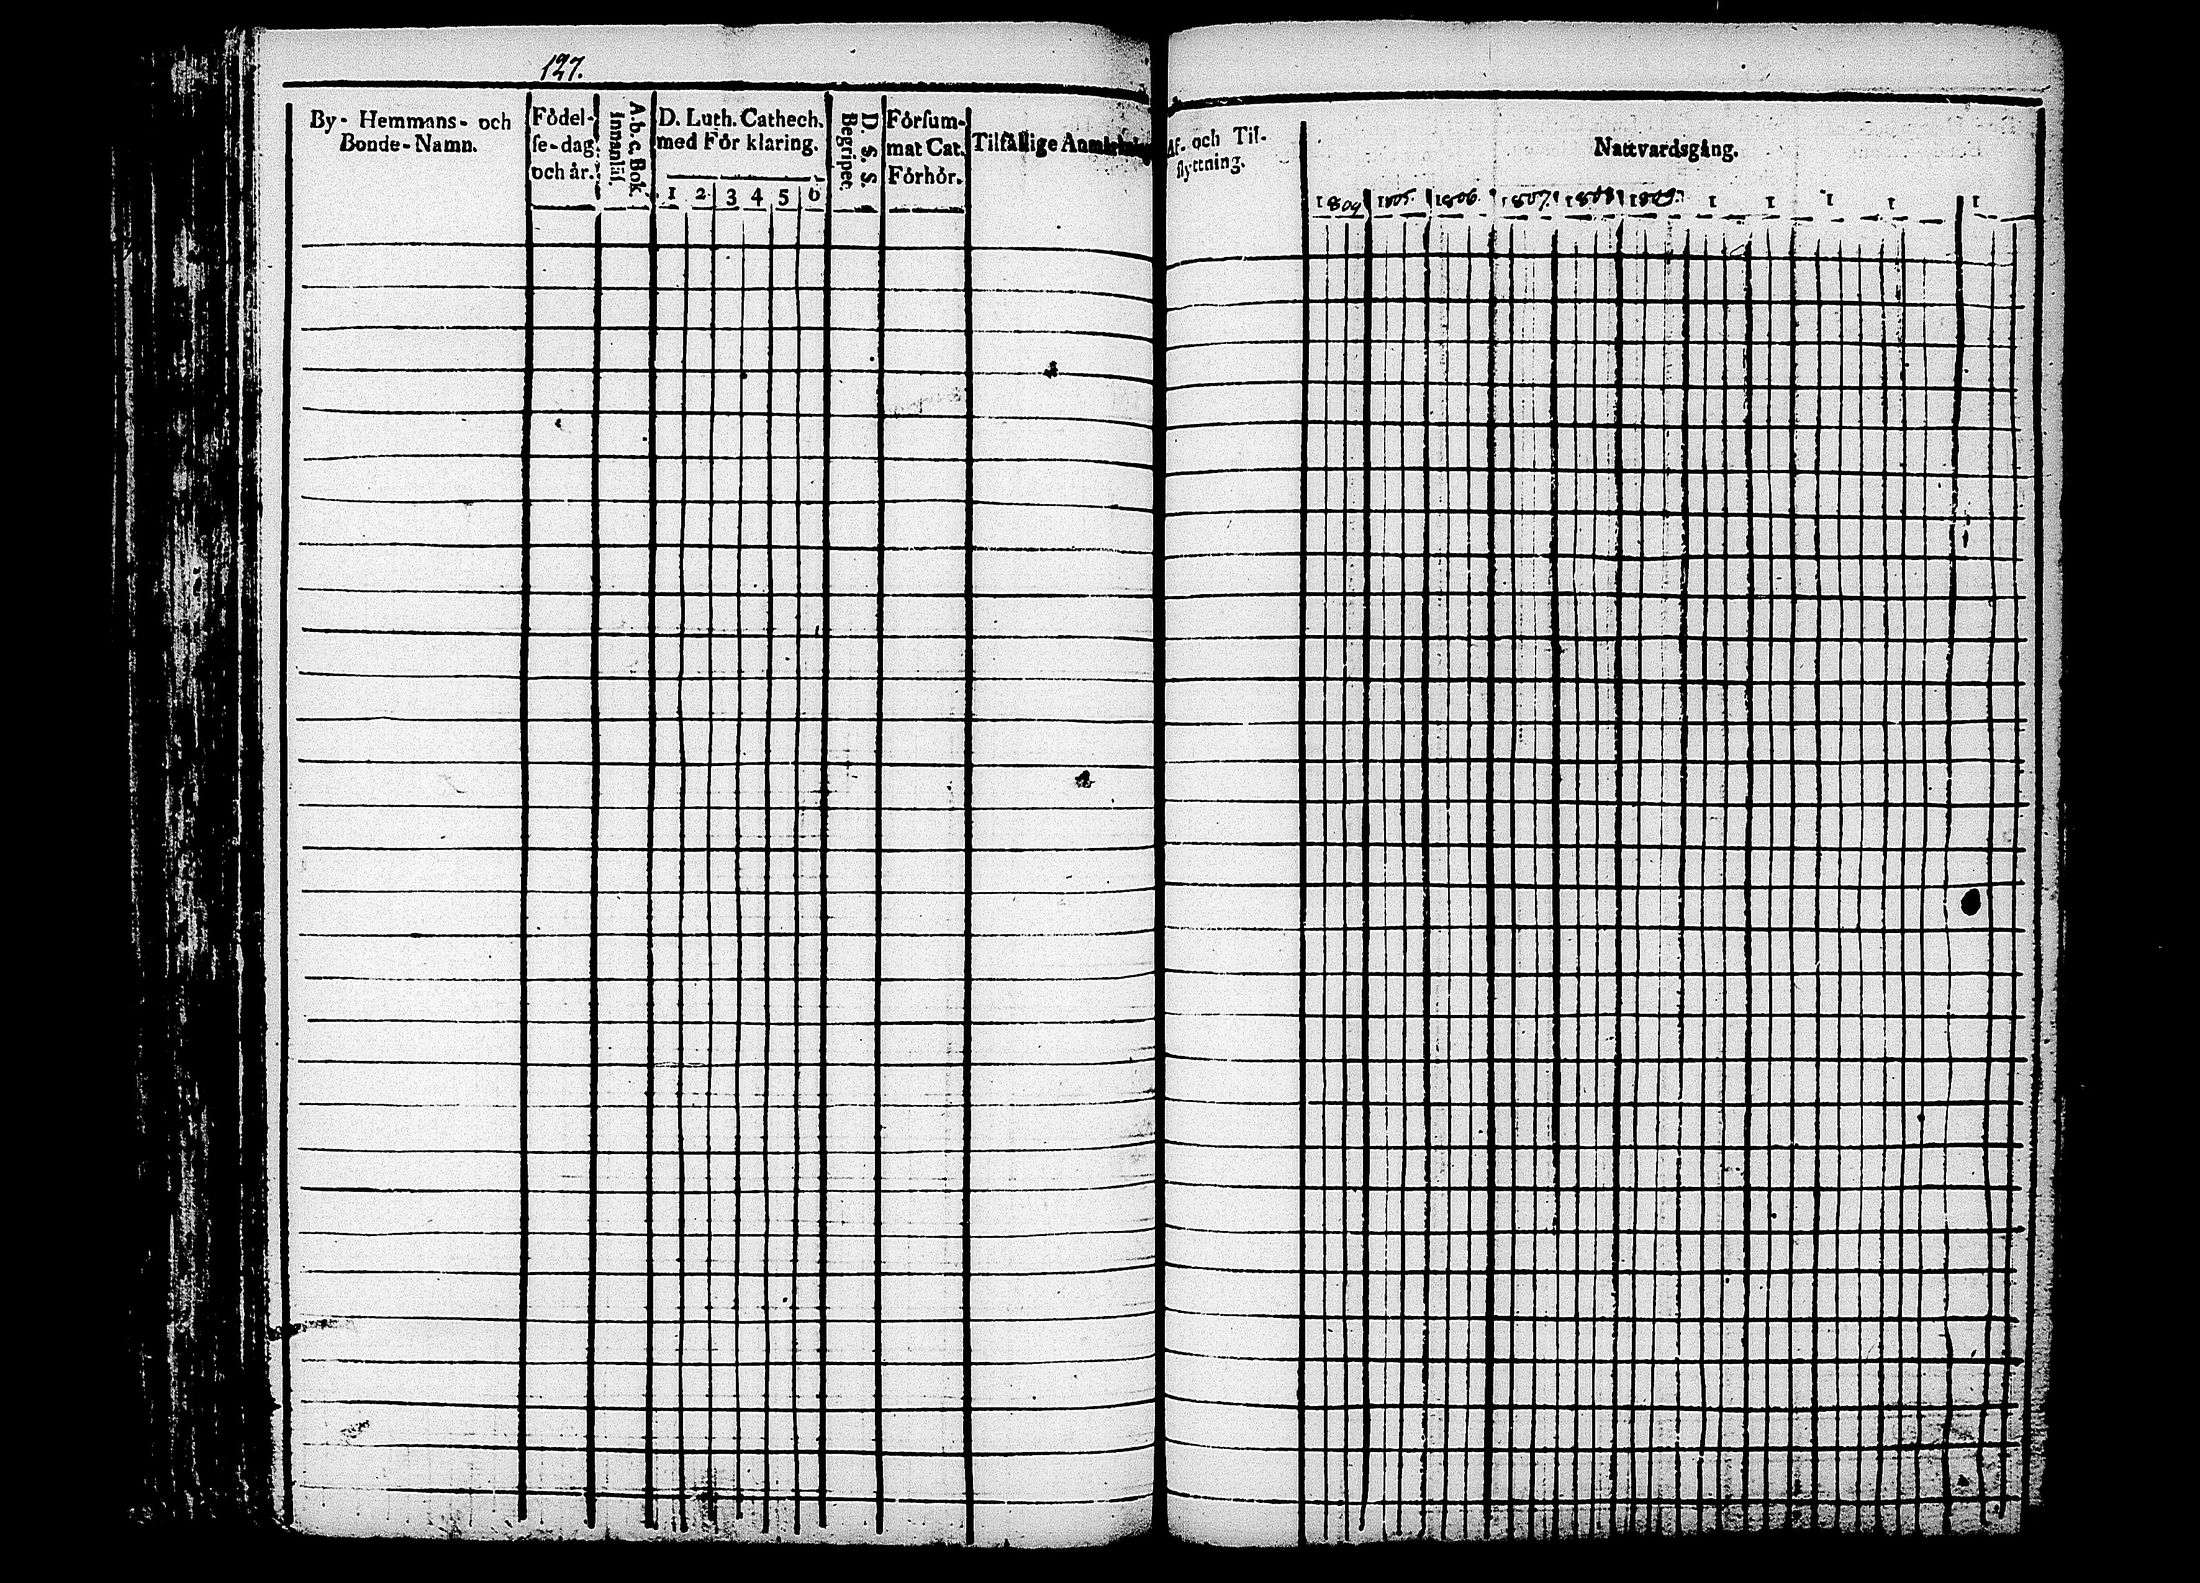 127.
By- Hemmans- och
Bonde-Namn.
Födel-
se-dag
och år.
A. b. c. Bok
Innanläs.
D. Luth. Cathech.
med För klaring.
1 2 3 4 5 6
D. S. S.
Begripet.
Försum-
mat Cat.
Förhör.
Tilfällige
Af- och Til-
flyttning.
Nattvardsgång.
1804 1805. 1806. 1807. 1808 1809. 1 1 1 1 1